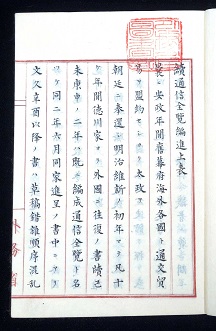 續通信全覽編進上表
曩ニ安政年間舊幕府海外各國ト通交貿
易ノ盟約 太政ヲ
朝廷ニ奉還シ明治維新ノ初年マテ凡十
年間德川家ヨリ外國ト往復ノ書牘己
未庚申ノ二年ハ既ニ編成通信全覽ト名
ケ同二年六月同家進呈ノ書中ニ
文久辛酉以降ノ書ハ草稿錯雜順序混乱
外務省